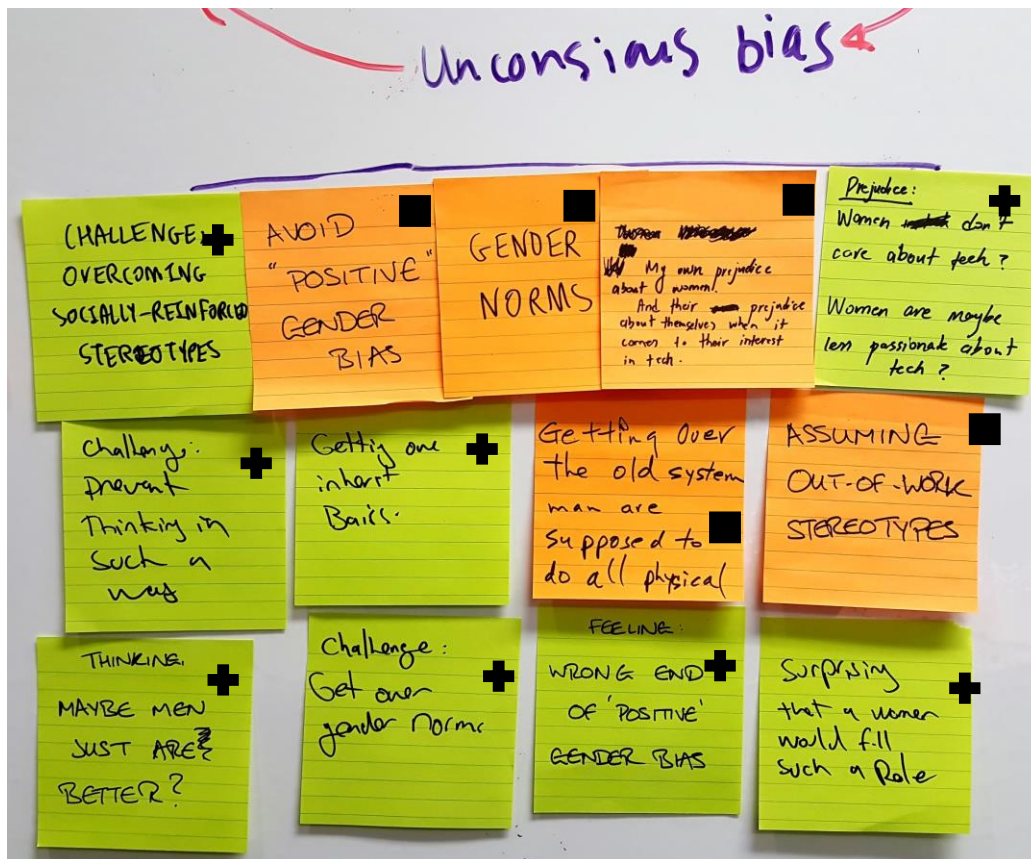 Unconsious bias
CHALLENGE:
OVERCOMING
SOCIALLY-REINFORCED
STEREOTYPES
AVOID
"POSITIVE"
GENDER
BIAS
GENDER
NORMS
My own prejudice
about women.
And their prejudice
about themselves when it
comes to their interest
in tech.
Prejudice:
Women don't
care about tech?
Women are maybe
less passionate about
tech?
Challenge:
prevent
Thinking in
Such a
way
Getting one
inherit
Baiss.
Getting Over
the old system
man are
supposed to
do all physical
ASSUMING
OUT-OF-WORK
STEREOTYPES
THINKING:
MAYBE MEN
JUST ARE
BETTER?
Challenge:
Get over
gender norms
FEELING:
WRONG END
OF 'POSITIVE'
GENDER BIAS
Surprising
that a women
would fill
such a Role